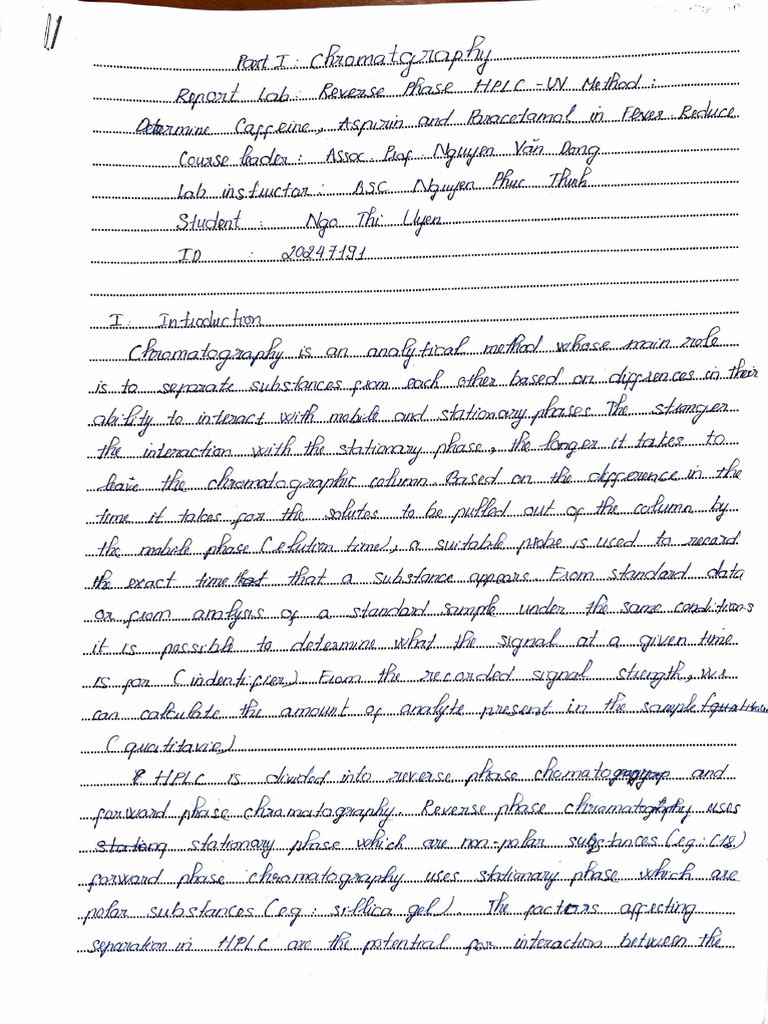 Part I: Chromatography
Report Lab: Reverse Phase HPLC - UV Method:
Determine Caffeine, Aspirin and Paracetamol in Fever Reduce
Course leader: Assoc. Prof Nguyen Văn Dong
Lab instuctor: BSC Nguyen Phuc Thinh
Student : Ngo Thi Uyen
ID : 20247191
I. Introduction
Chromatography is an analytical method whose main role
is to separate substances from each other based on diffrences in their
ability to interact with mobile and stationary phases. The stronger
the interaction with the stationary phase, the longer it takes to
leave the chromatographic column. Based on the difference in the
time it takes for the solutes to be pulled out of the column by
the mobile phase (elution time), a suitable probe is used to record
the exact time that a substance appears. From standard data
or from analysis of a standard sample under the same conditions
it is possible to determine what the signal at a given time
is for (indentifier) From the recorded signal strength, we
can calculate the amount of analyte present in the sample
(quatitavie)
HPLC is divided into reverse phase and
forward phase chromatography. Reverse phase chromatography uses
stationary phase which are non-polar substances (eg: C18)
forward phase chromatography uses stationary phase which are
polar substances (eg: sillica gel). The factors affecting
separation in HPLC are the potential for interaction between the